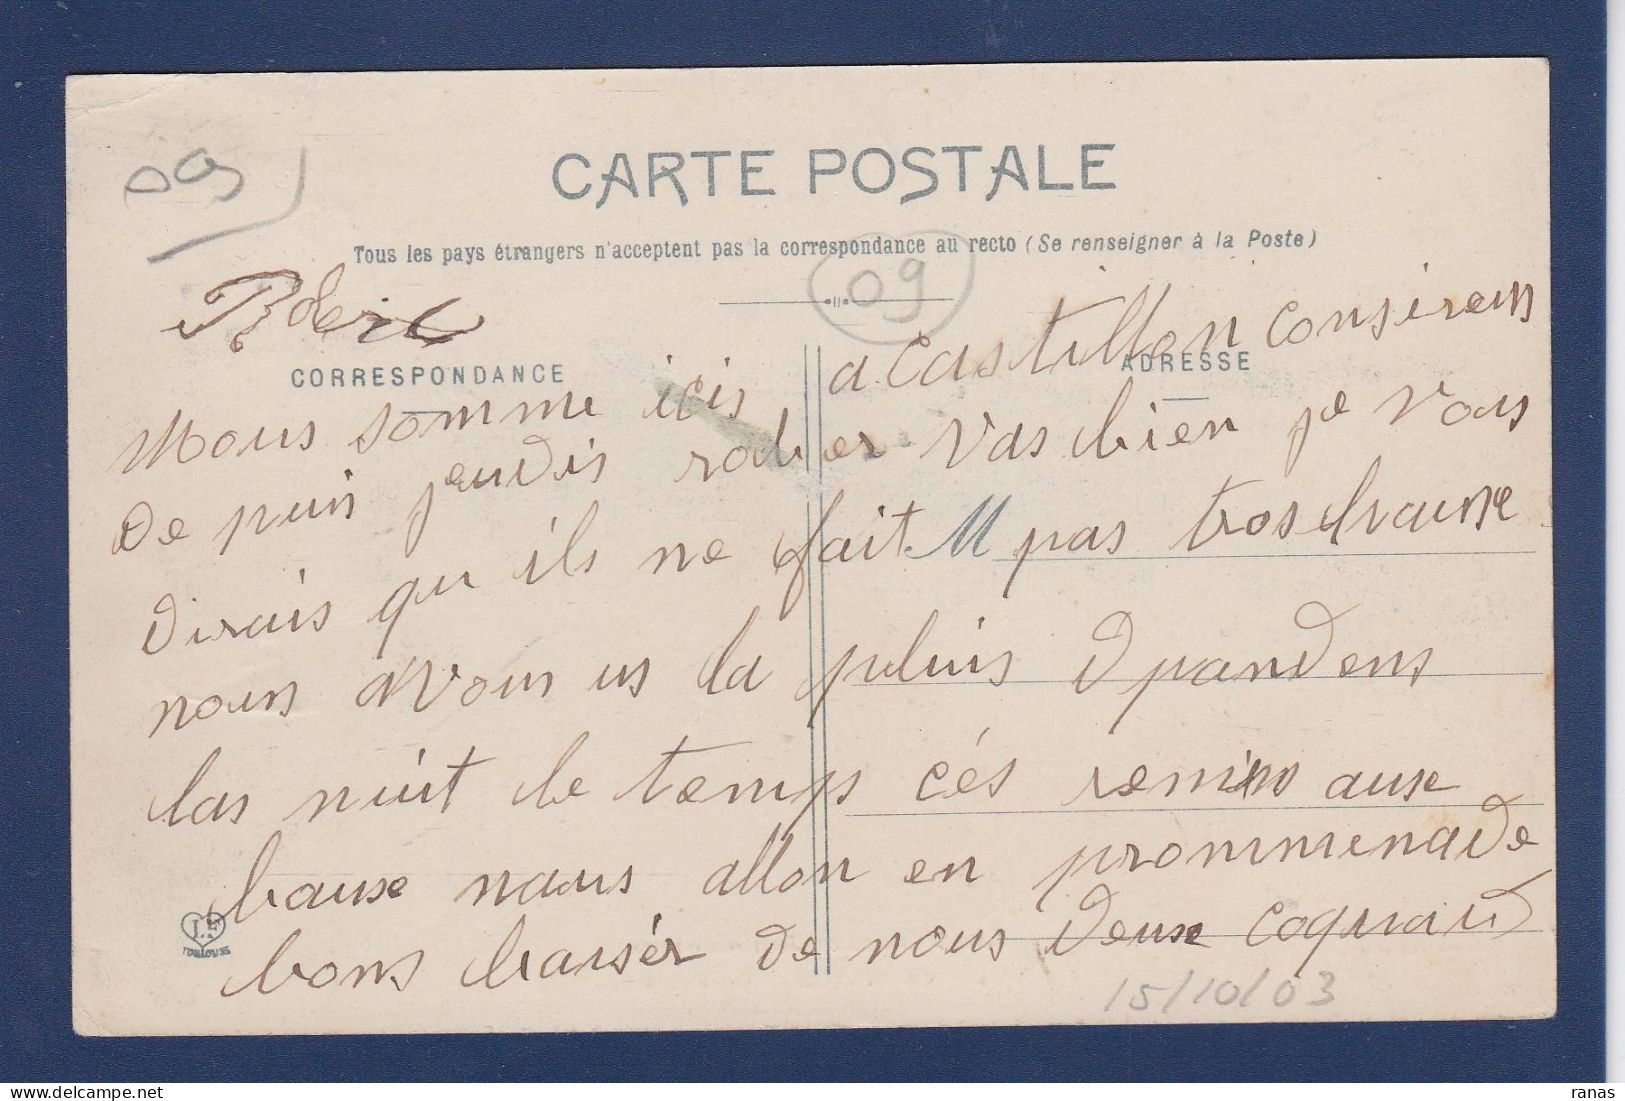 09
CARTE POSTALE
Tous les pays étrangers n'acceptent pas la correspondance au recto (Se renseigner à la Poste)
09
Robert
CORRESPONDANCE
ADRESSE
Nous somme icis a Castillon Conserens
de puis jeudis rober vas bien je vous
dirais qu ils ne fait pas tros chause
nous avons us la pluis dpandens
las nuit le temps cés remis ause
bause nous allon en prommenade
bons baisér de nous deuse Coquaud
LF
TOULOUSE
15/10/03
ranas